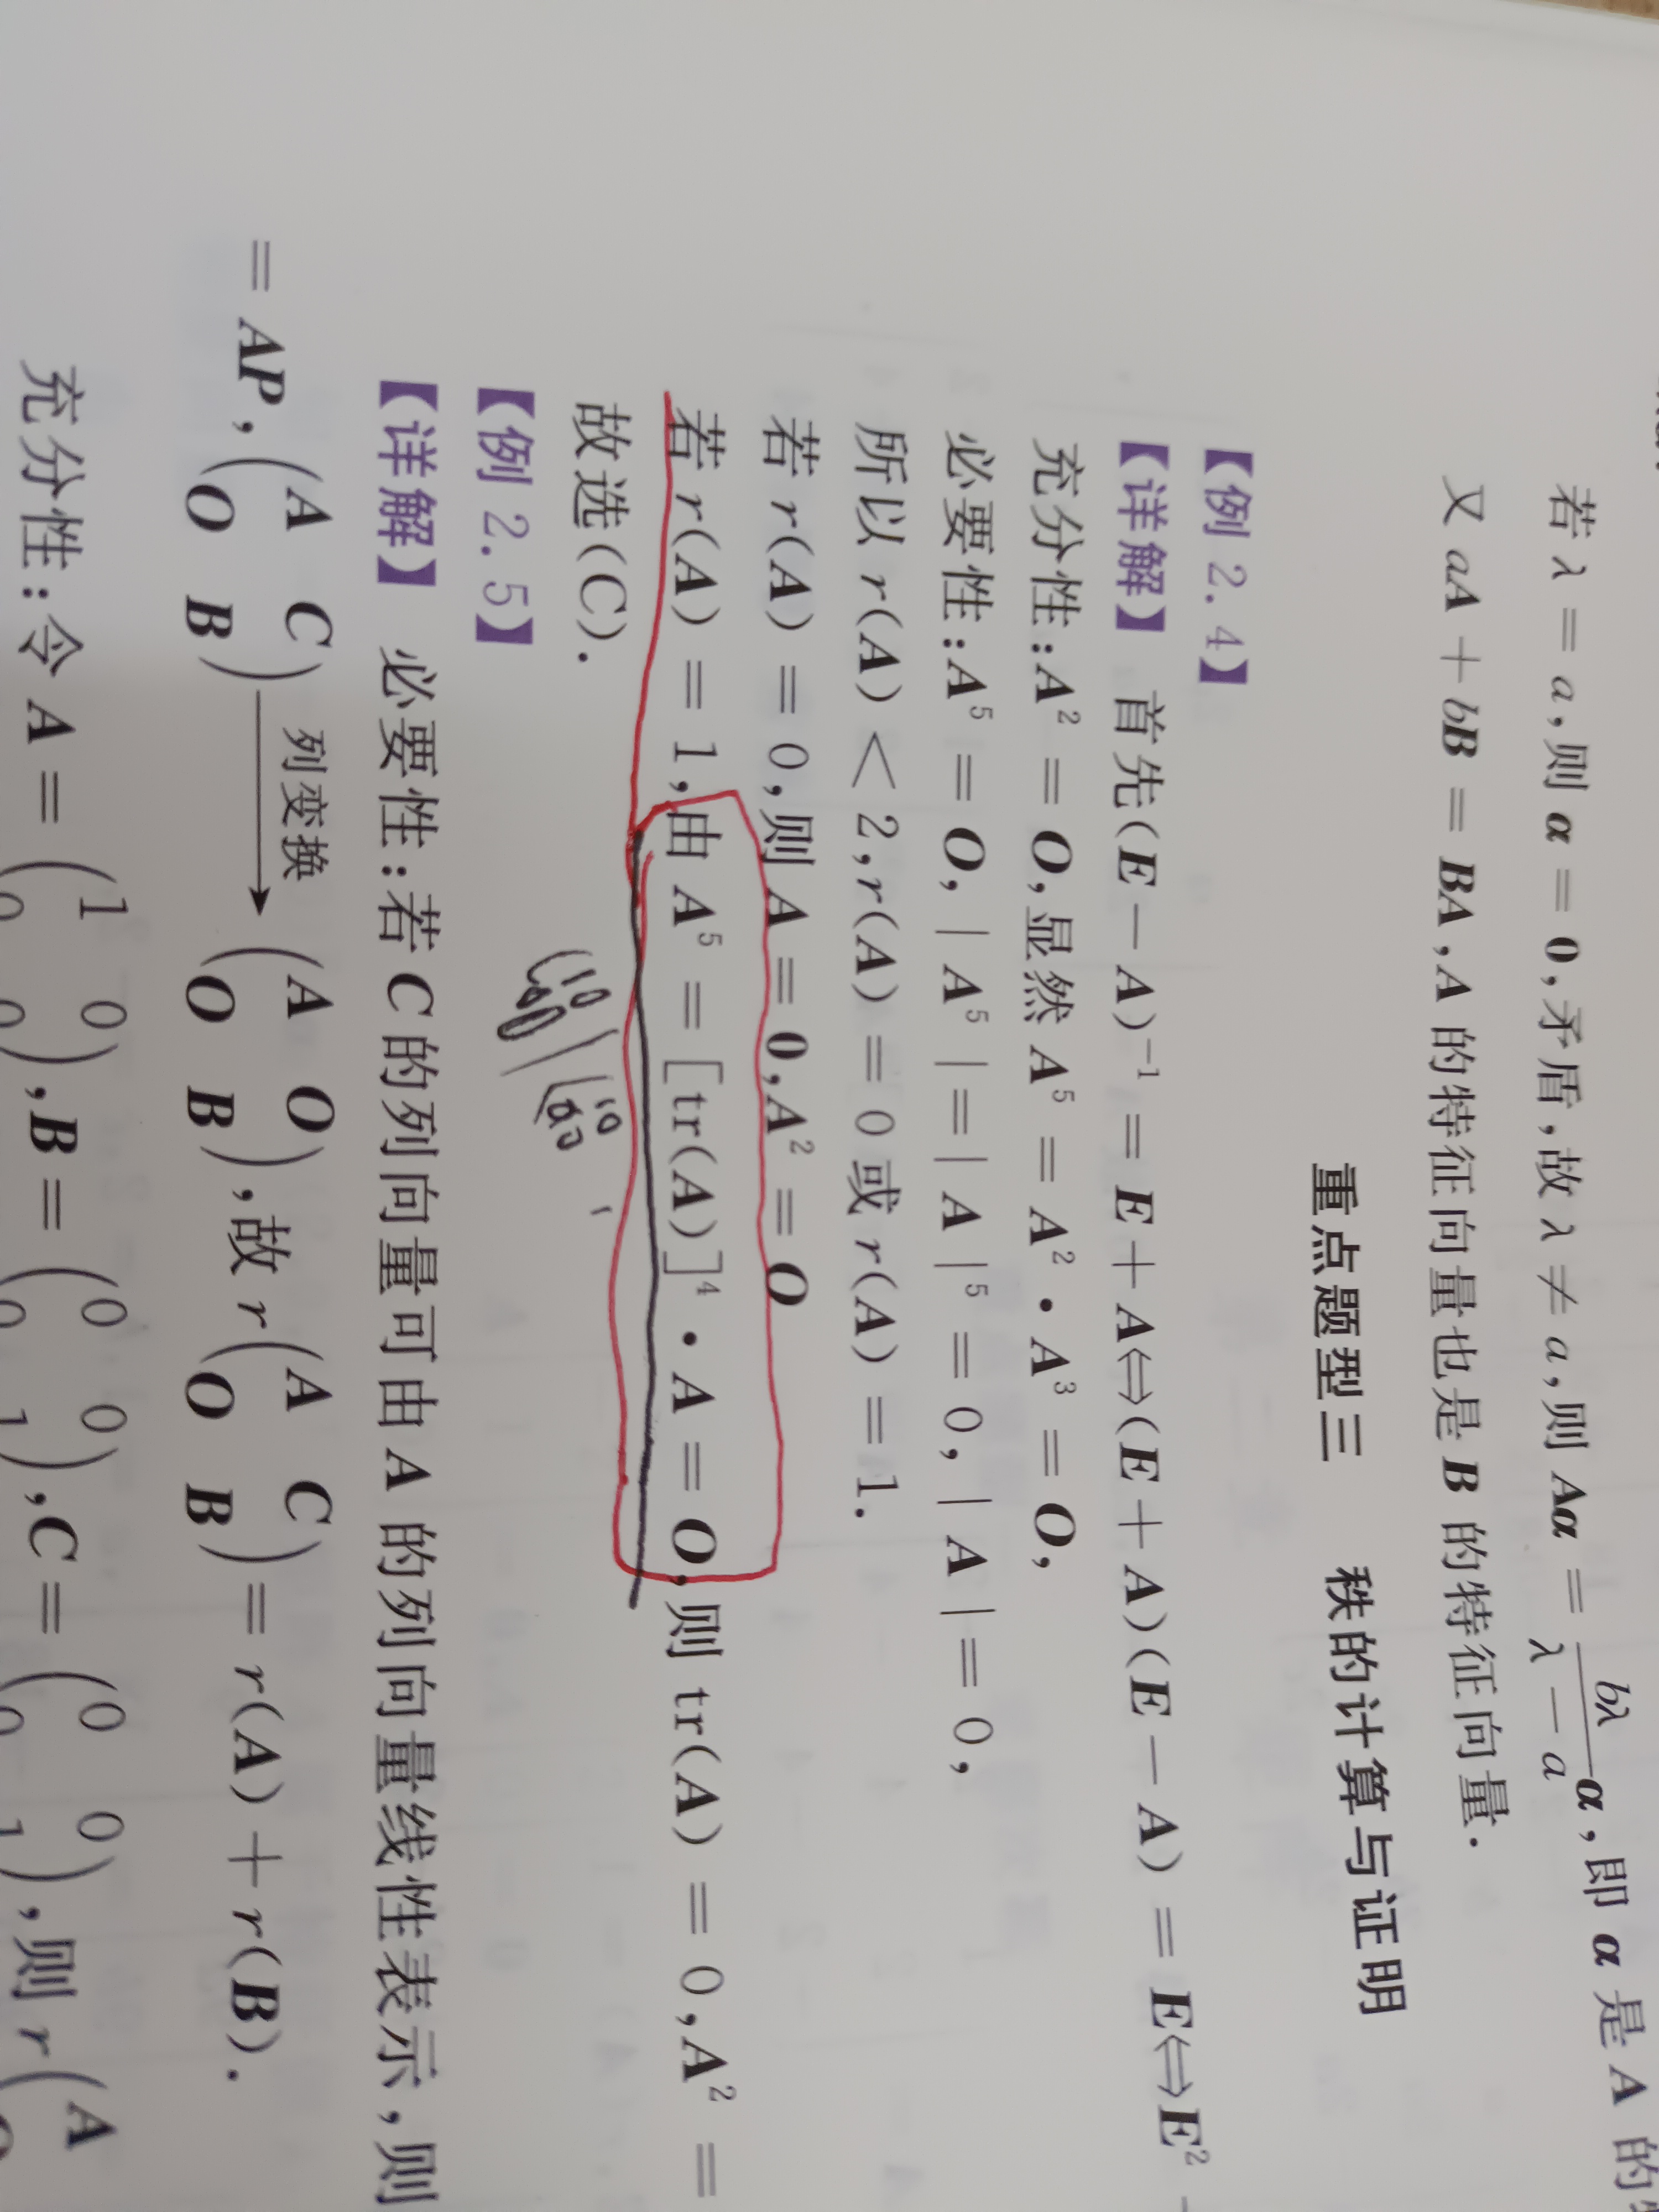 若 λ = a,则 α = 0,矛盾,故 λ ≠ a,则 Aα = bλ/(λ − a) α,即 α 是 A 的
又 aA + bB = BA,A 的特征向量也是 B 的特征向量.
重点题型三 秩的计算与证明
【例 2.4】
【详解】 首先(E − A)⁻¹ = E + A⇔(E + A)(E − A) = E⇔E²
充分性:A² = O,显然 A⁵ = A² • A³ = O,
必要性:A⁵ = O,| A⁵ |=| A |⁵ = 0,| A |= 0,
所以 r(A) < 2,r(A) = 0 或 r(A) = 1.
若 r(A) = 0,则 A = 0,A² = O
若 r(A) = 1,由 A⁵ = [tr(A)]⁴ • A = O,则 tr(A) = 0,A² =
故选(C).
【例 2.5】
【详解】 必要性:若 C 的列向量可由 A 的列向量线性表示,则
= AP,(A C
O B) 列变换→ (A O
O B),故 r(A C
O B) = r(A) + r(B).
充分性:令 A = (1 0
0 0),B = (0 0
0 1),C = (0 0
0 1),则 r(A